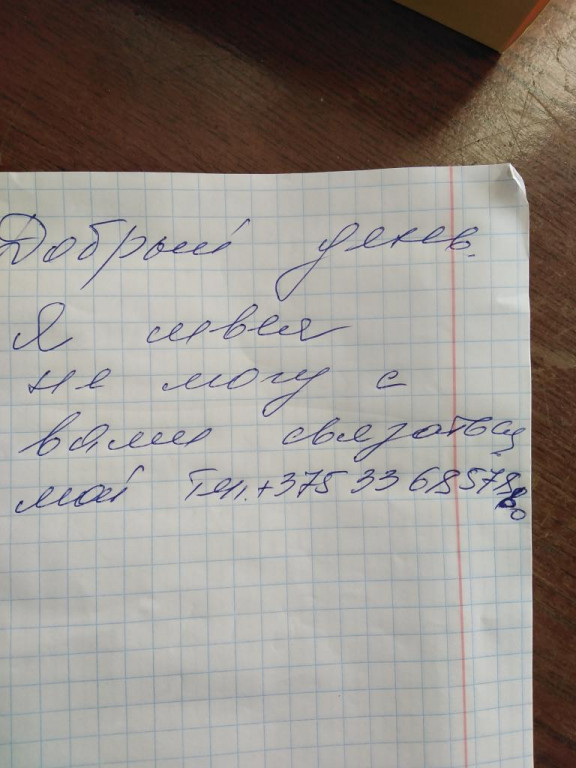 Добрый день.
Я
не могу с
вами связаться
мой тел. +375 33 68578